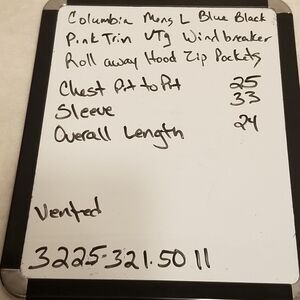 Columbia Mens L Blue Black
Pink Trim VTg Windbreaker
Roll away Hood Zip Pockets
Chest Pit to Pit 25
Sleeve 33
Overall Length 24
Vented
3225-321.50 11